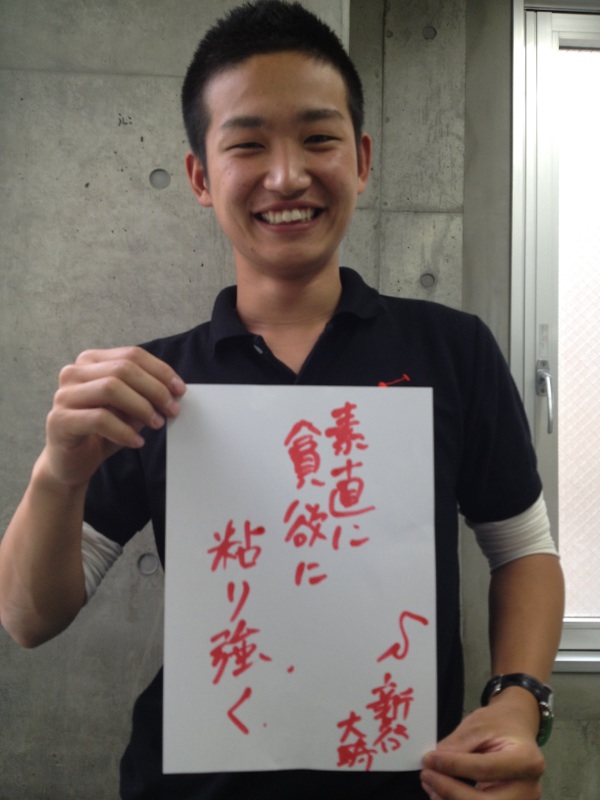 素直に
貪欲に
粘り強く
新代
大崎